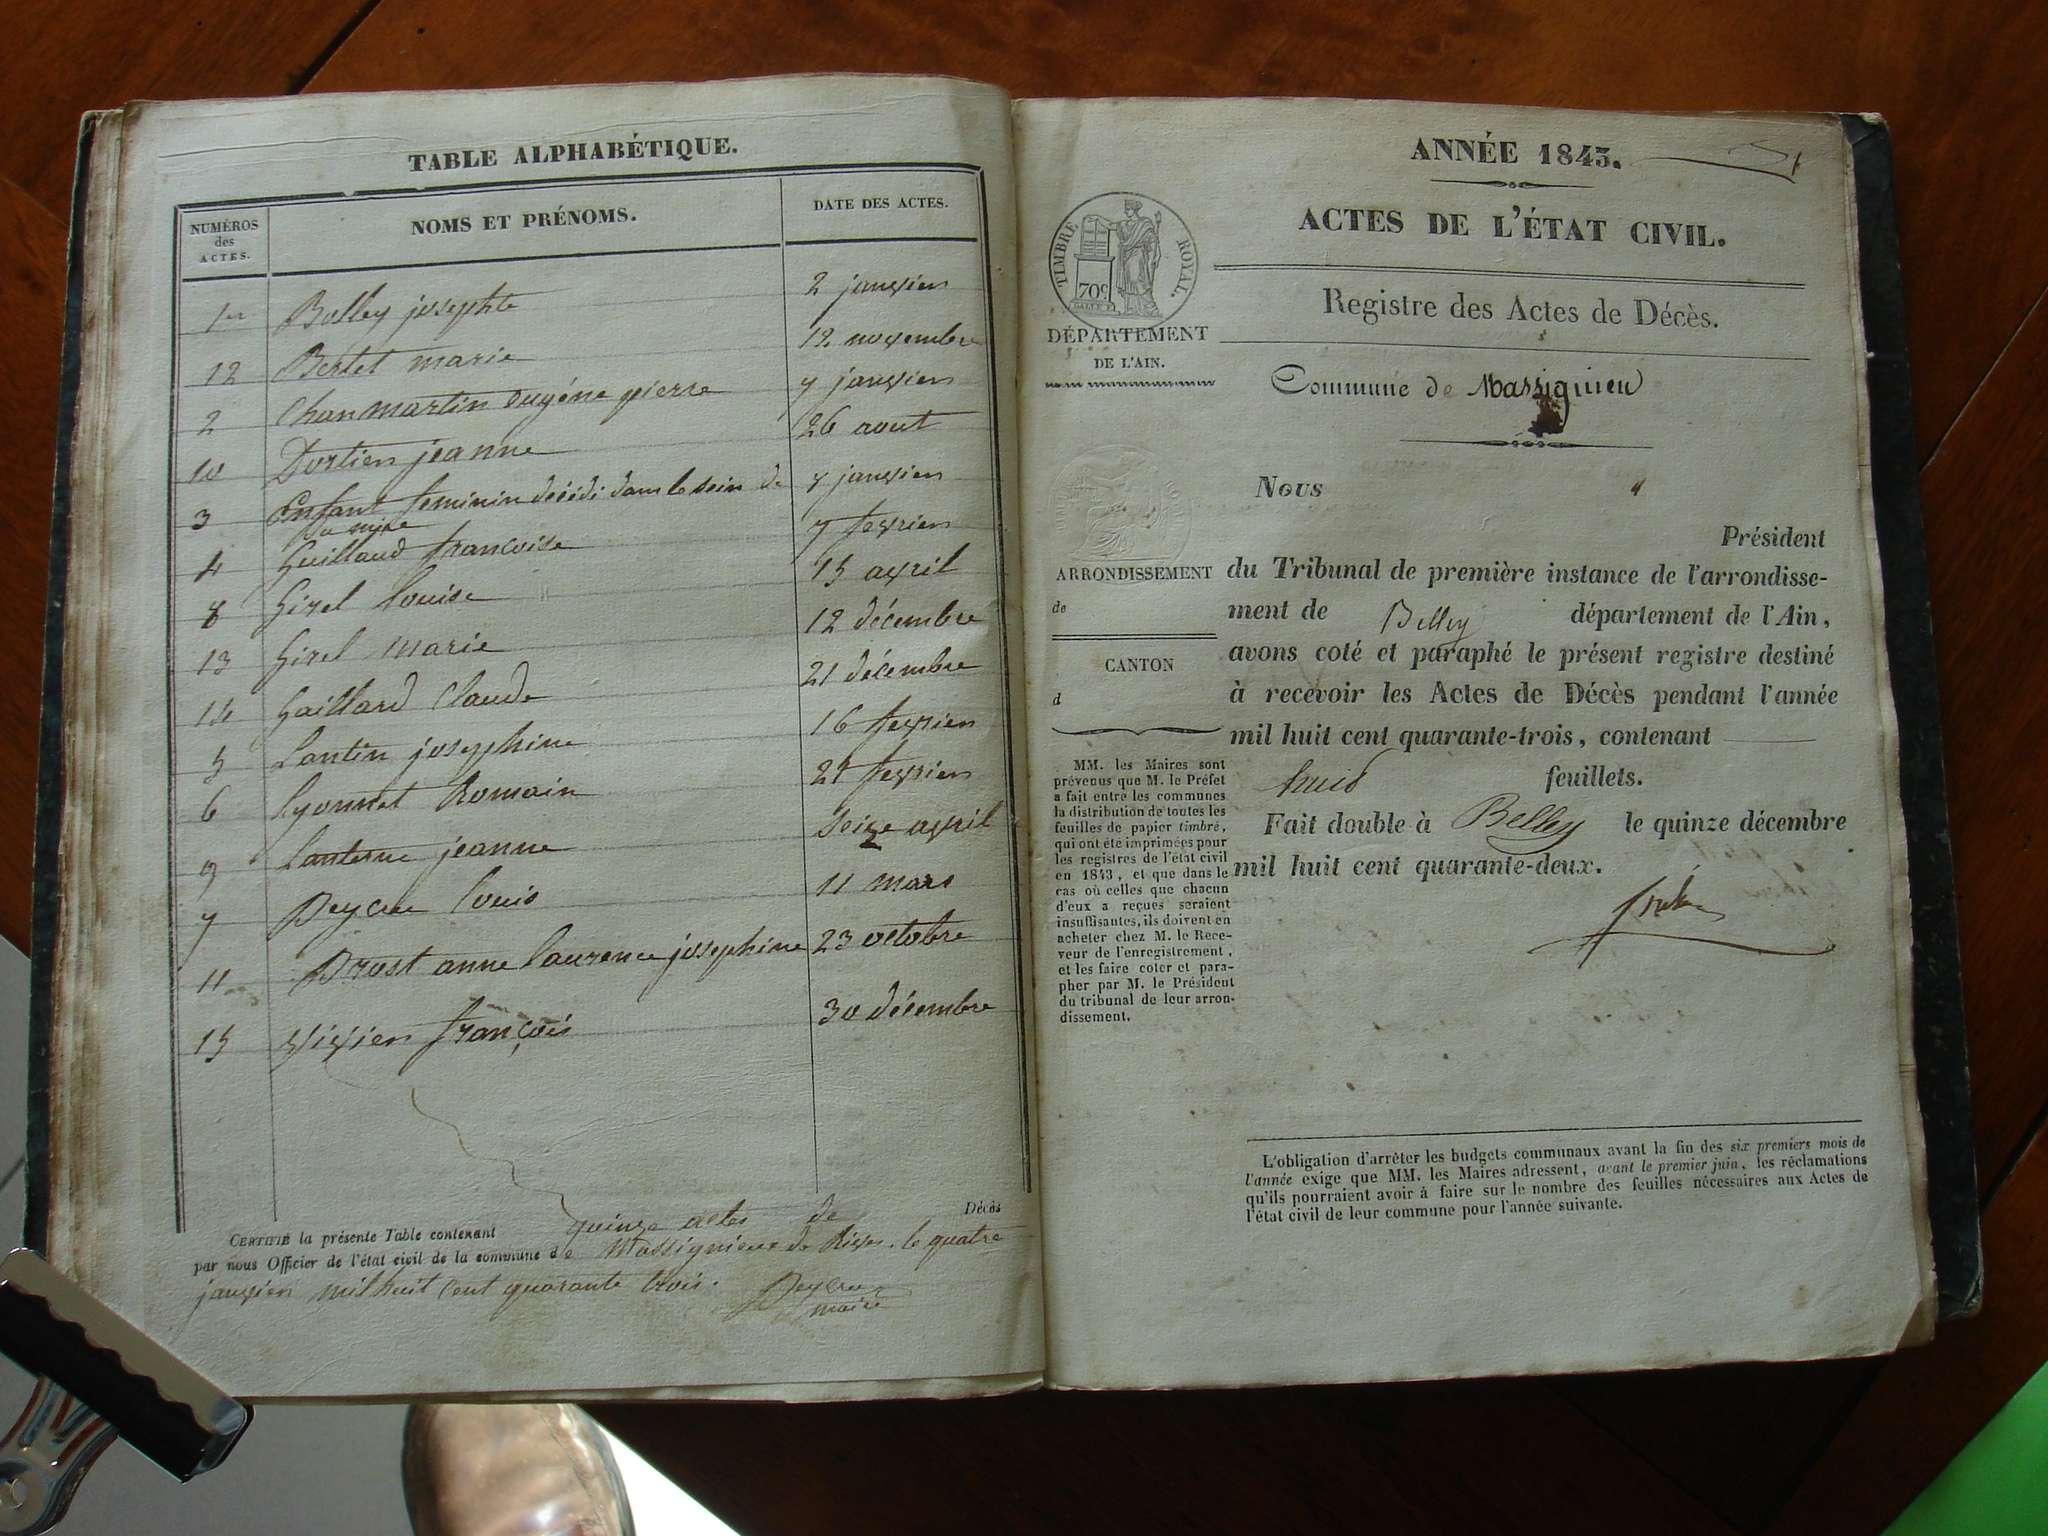 TABLE ALPHABÉTIQUE.
NUMÉROS des ACTES. NOMS ET PRÉNOMS. DATE DES ACTES.
1er Bolley josephte 2 janvier
12 Bertet marie 12 novembre
2 Chanmartin Eugéne pierre 7 janvier
10 Dortien jeanne 26 aout
3 Enfant feminin décédé dans le sein de 7 janvier
sa mère
4 Guillaud françoise 7 fevrier
8 Girel Louise 15 avril
13 Girel marie 12 décembre
14 Gaillard Claude 21 décembre
5 Lantin josephine 16 fevrier
6 Lyonnet Romain 27 fevrier
9 Lanterne jeanne Seize avril
7 Peycru Louis 11 mars
11 Prost anne laurence josephine 23 octobre
15 Vivien françois 30 décembre
CERTIFIÉ la présente Table contenant quinze actes de Décès
par nous Officier de l'état civil de la commune de Massignieu de Rives. le quatre
janvier mil huit Cent quarante trois. Peycru
maire
ANNÉE 1843.
ACTES DE L'ÉTAT CIVIL.
TIMBRE ROYAL.
70c
Registre des Actes de Décès.
DÉPARTEMENT
DE L'AIN.
Commune de Massignieu
Nous
Président
ARRONDISSEMENT
de
CANTON
d
du Tribunal de première instance de l'arrondisse-
ment de Belley département de l'Ain,
avons coté et paraphé le présent registre destiné
à recevoir les Actes de Décès pendant l'année
mil huit cent quarante-trois, contenant
huit feuillets.
Fait double à Belley le quinze décembre
mil huit cent quarante-deux.
MM. les Maires sont
prévenus que M. le Préfet
a fait entre les communes
la distribution de toutes les
feuilles de papier timbré,
qui ont été imprimées pour
les registres de l'état civil
en 1843, et que dans le
cas où celles que chacun
d'eux a reçues seraient
insuffisantes, ils doivent en
acheter chez M. le Rece-
veur de l'enregistrement,
et les faire coter et para-
pher par M. le Président
du tribunal de leur arron-
dissement.
L'obligation d'arrêter les budgets communaux avant la fin des six premiers mois de
l'année exige que MM. les Maires adressent, avant le premier juin, les réclamations
qu'ils pourraient avoir à faire sur le nombre des feuilles nécessaires aux Actes de
l'état civil de leur commune pour l'année suivante.